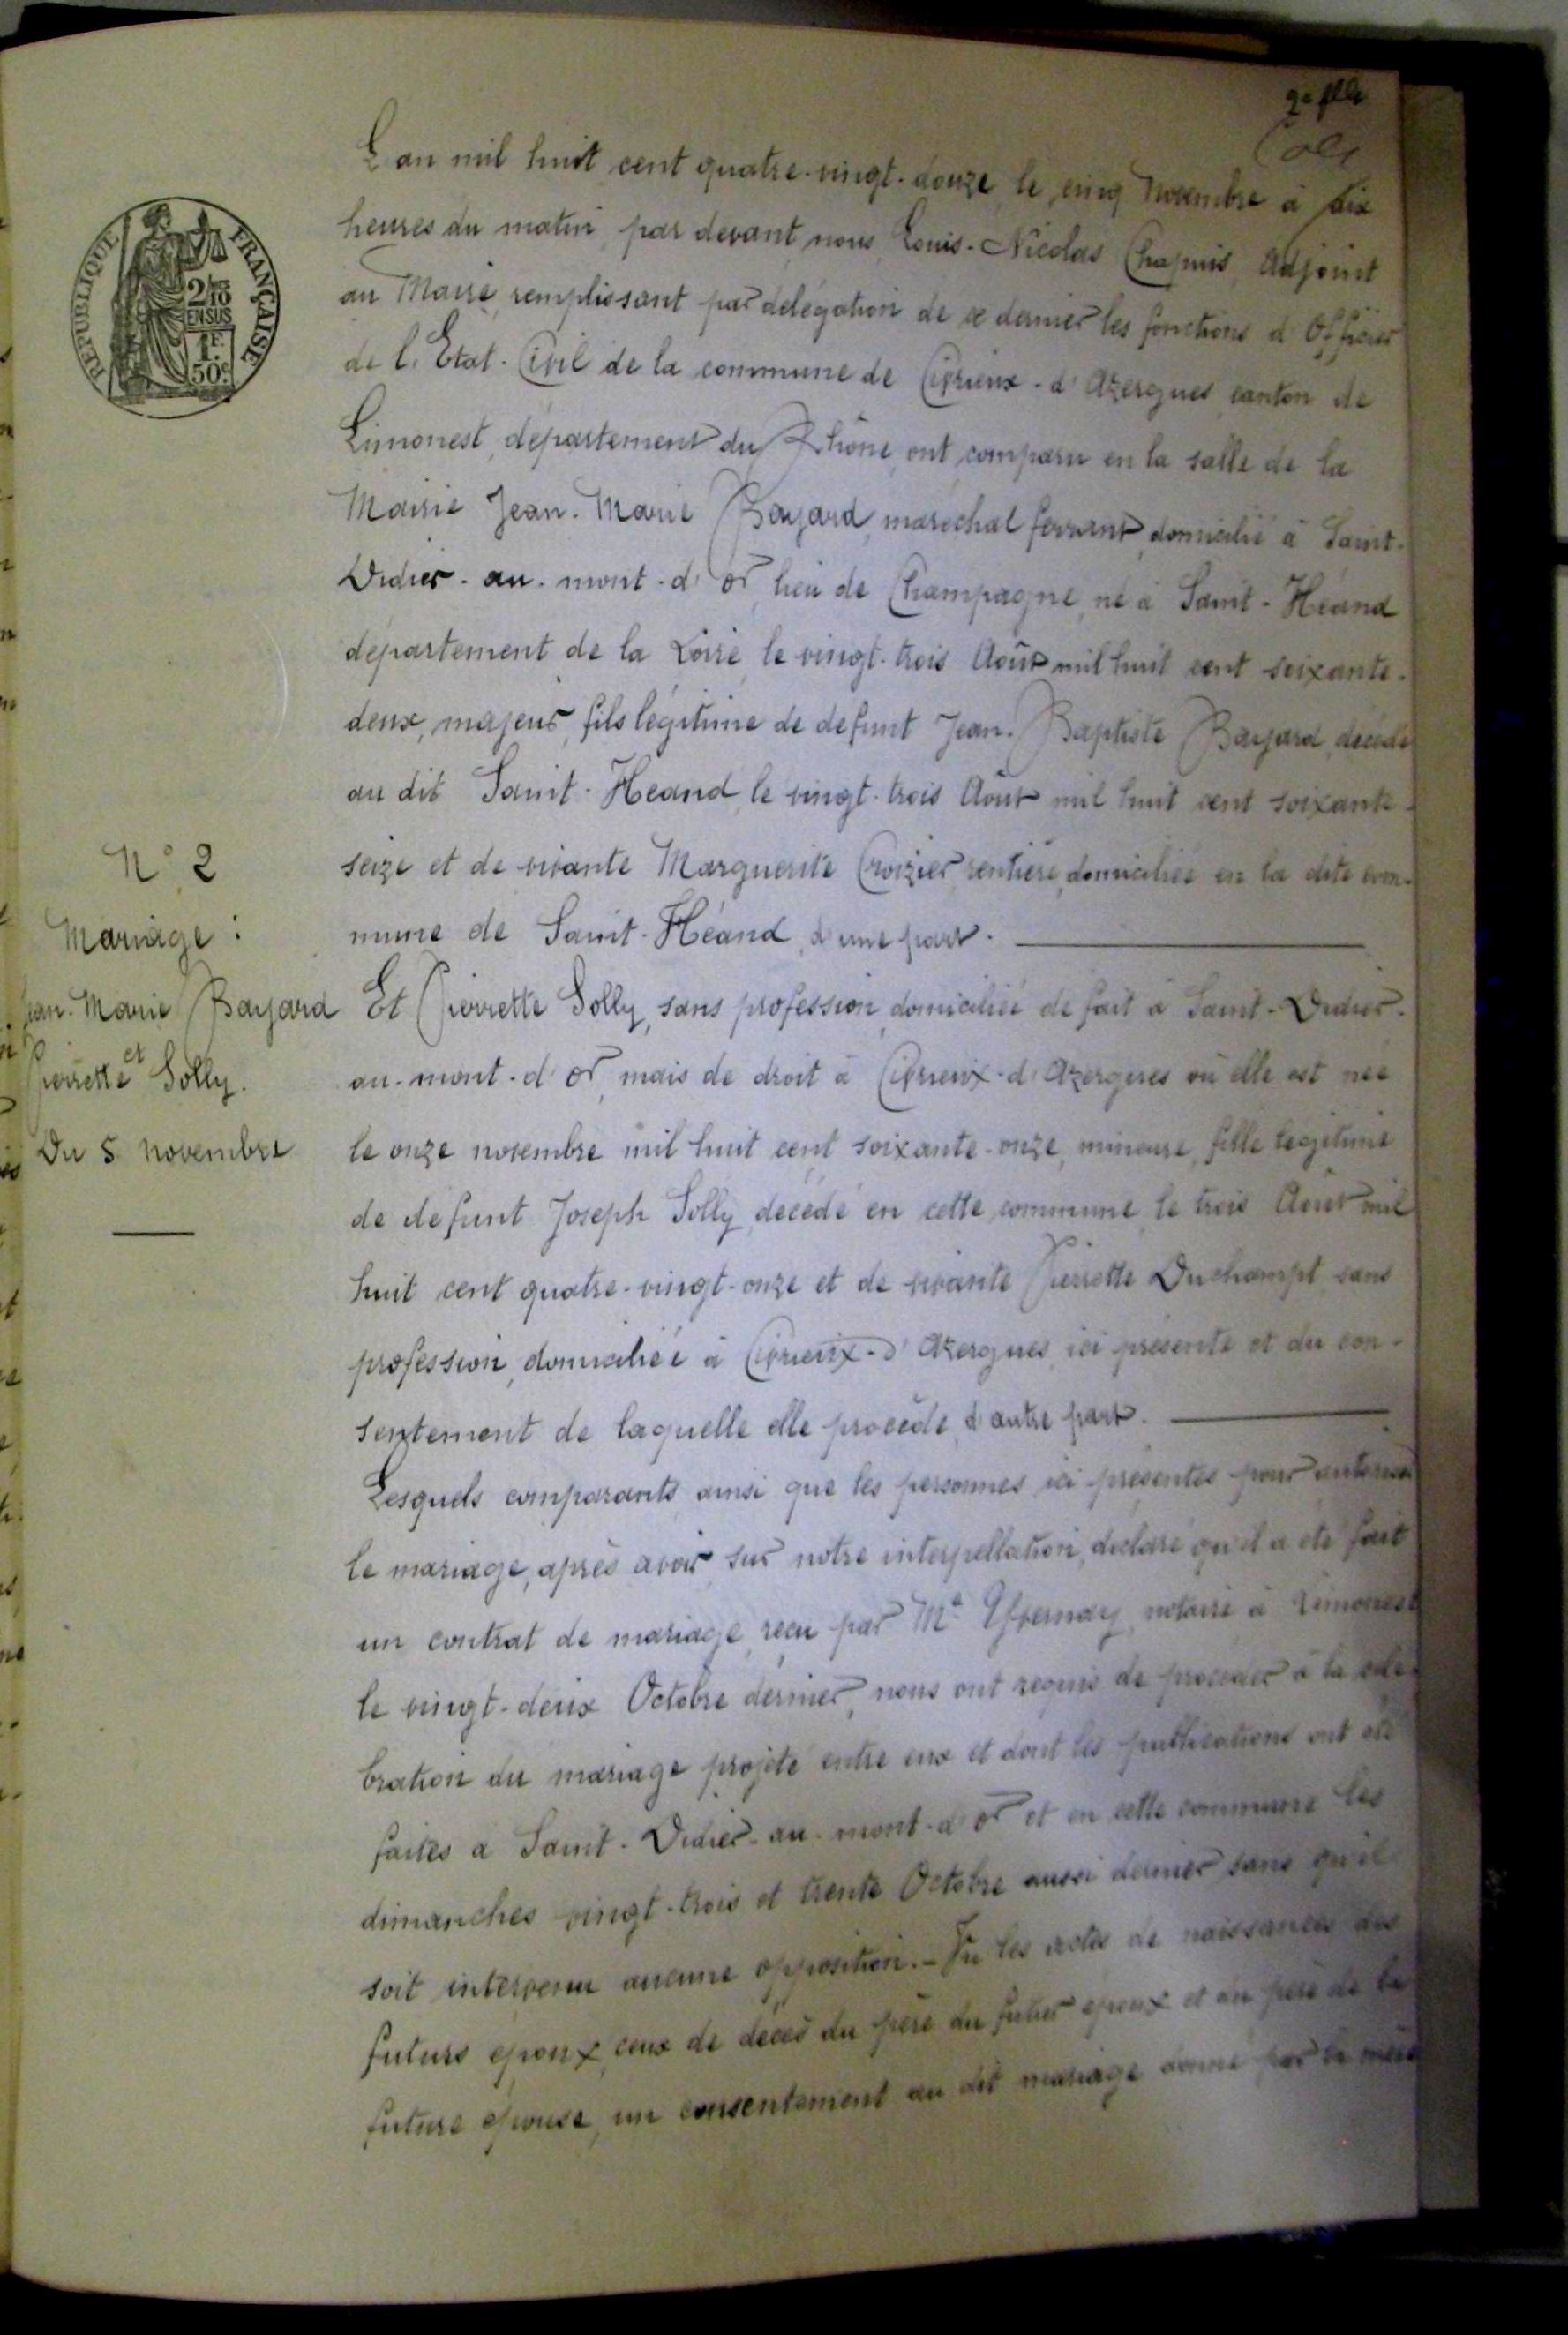 2e flle
RÉPUBLIQUE FRANÇAISE
2/10
EN SUS
1F
50c
L'an mil huit cent quatre-vingt-douze, le cinq Novembre à dix
heures du matin, par devant nous, Louis-Nicolas Chapuis, Adjoint
au Maire, remplissant par délégation de ce dernier les fonctions d'Officier
de l'Etat-Civil de la commune de Civrieux-d'Azergues, canton de
Limonest, département du Rhône, ont comparu en la salle de la
Mairie Jean-Marie Bayard, maréchal ferrant, domicilié à Saint-
Didier-au-mont-d'or, lieu de Champagne, né à Saint-Héand
département de la Loire, le vingt-trois Août mil huit cent soixante-
deux, majeur, fils légitime de défunt Jean-Baptiste Bayard, décédé
au dit Saint-Héand, le vingt-trois Août mil huit cent soixante-
seize et de vivante Marguerite Croizier, rentière, domiciliée en la dite com-
mune de Saint-Héand, d'une part.
N° 2
Mariage :
Jean-Marie Bayard
et
Pierrette Solly.
Du 5 novembre
Et Pierrette Solly, sans profession, domiciliée de fait à Saint-Didier-
au-mont-d'or, mais de droit à Civrieux-d'Azergues où elle est née
le onze novembre mil huit cent soixante-onze, mineure, fille légitime
de défunt Joseph Solly, décédé en cette commune, le trois Août mil
huit cent quatre-vingt-onze et de vivante Pierrette Duchampt, sans
profession, domiciliée à Civrieux-d'Azergues, ici présente et du con-
sentement de laquelle elle procède, d'autre part.
Lesquels comparants, ainsi que les personnes ici présentes pour autoriser
le mariage, après avoir, sur notre interpellation, déclaré qu'il a été fait
un contrat de mariage, reçu par Me Yvernay, notaire à Limonest
le vingt-deux Octobre dernier, nous ont requis de procéder à la célé-
bration du mariage projeté entre eux et dont les publications ont été
faites à Saint-Didier-au-mont-d'or et en cette commune les
dimanches vingt-trois et trente Octobre aussi dernier sans qu'il
soit intervenu aucune opposition. - Vu les actes de naissances des
futurs époux, ceux de décès du père du futur époux et du père de la
future épouse, un consentement au dit mariage donné par la mère